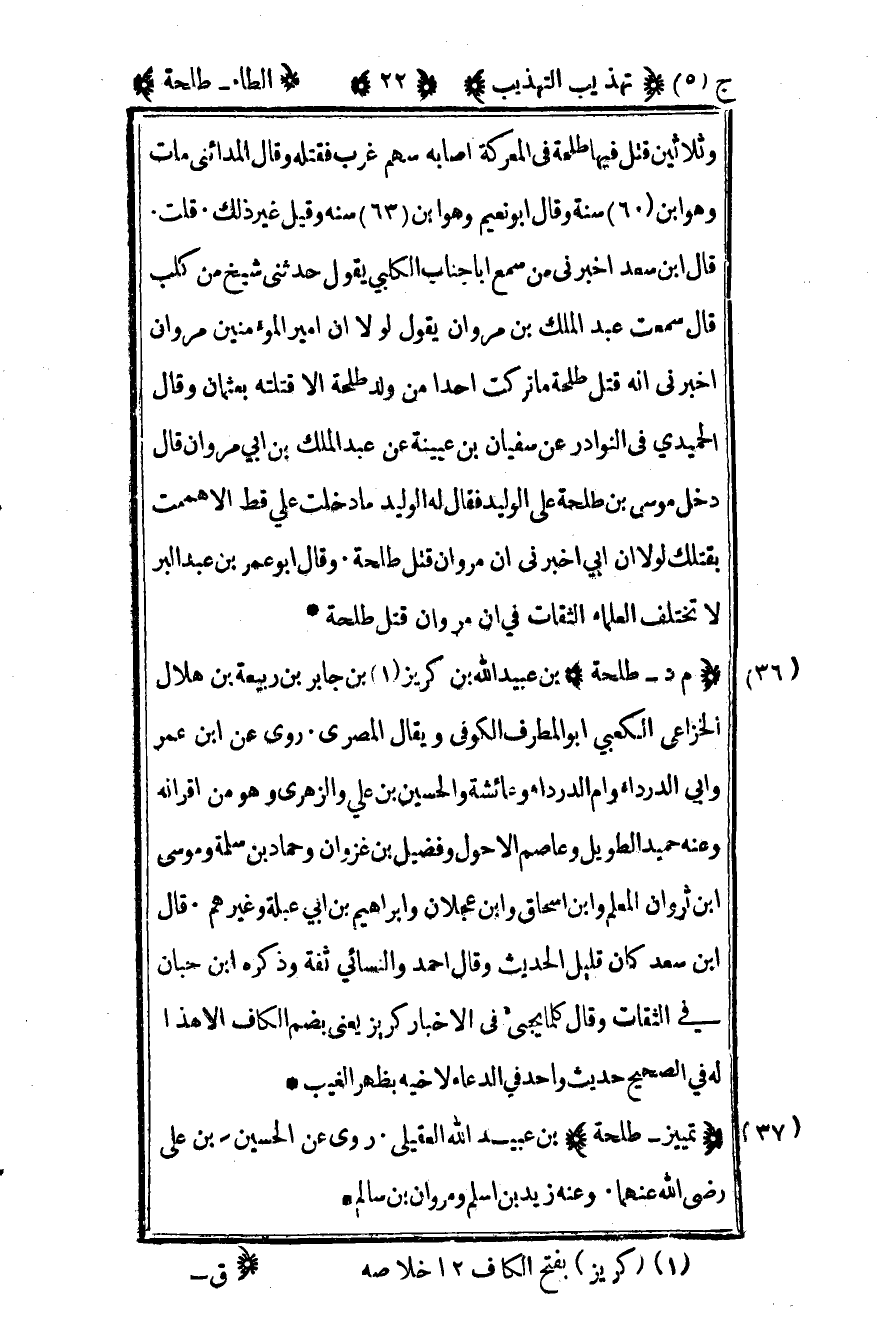 ج (٥) ﴿ تهذيب التهذيب ﴾ ﴿ ٢٢ ﴾ ﴿ الطاء ـ طلحة ﴾
وثلاثين قتل فيها طلحة فى المعركة اصابه سهم غرب فقتله وقال المدائنى مات
وهو ابن (٦٠) سنة وقال ابو نعيم وهو ابن (٦٣) سنه وقيل غير ذلك ٠ قلت ٠
قال ابن سعد اخبر نى من سمع ابا جناب الكلبي يقول حدثنى شيخ من كلب
قال سمعت عبد الملك بن مروان يقول لو لا ان امير الموء منين مروان
اخبر نى انه قتل طلحة ما تركت احدا من ولد طلحة الا قتلته بعثمان وقال
الحميدي فى النوادر عن سفيان بن عيينة عن عبد الملك بن ابي مروان قال
دخل موسى بن طلحة على الوليد فقال له الوليد ما دخلت علي قط الا هممت
بقتلك لولا ان ابي اخبر نى ان مروان قتل طلحة ٠ وقال ابو عمر بن عبد البر
لا تختلف العلماء الثقات في ان مروان قتل طلحة *
(٣٦) ﴿ م د ـ طلحة ﴾ بن عبيد الله بن كريز (١) بن جابر بن ربيعة بن هلال
الخزاعى الكعبي ابو المطرف الكوفى و يقال المصرى ٠ روى عن ابن عمر
وابي الدرداء وام الدرداء وعائشة والحسين بن علي والزهرى و هو من اقرانه
وعنه حميد الطويل وعاصم الاحول وفضيل بن غزوان وحماد بن سلمة وموسى
ابن ثروان المعلم وابن اسحاق وابن عجلان وابراهيم بن ابي عبلة وغيرهم ٠ قال
ابن سعد كان قليل الحديث وقال احمد والنسائي ثقة وذكره ابن حبان
في الثقات وقال كلما يجيىء فى الاخبار كريز يعنى بضم الكاف الا هذا
له في الصحيح حديث واحد في الدعاء لاخيه بظهر الغيب *
(٣٧) ﴿ تمييز ـ طلحة ﴾ بن عبيد الله العقيلي ٠ روى عن الحسين بن على
رضى الله عنهما ٠ وعنه زيد بن اسلم ومروان بن سالم *
(١) (كريز) بفتح الكاف ١٢ خلاصه ﴿ ق ـ